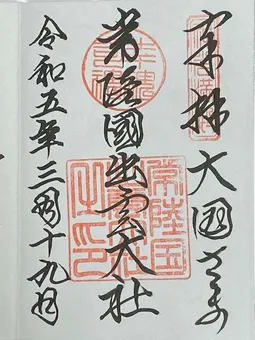 奉拝 大国さま
常陸國出雲大社
令和五年三月十九日
常陸国
之印